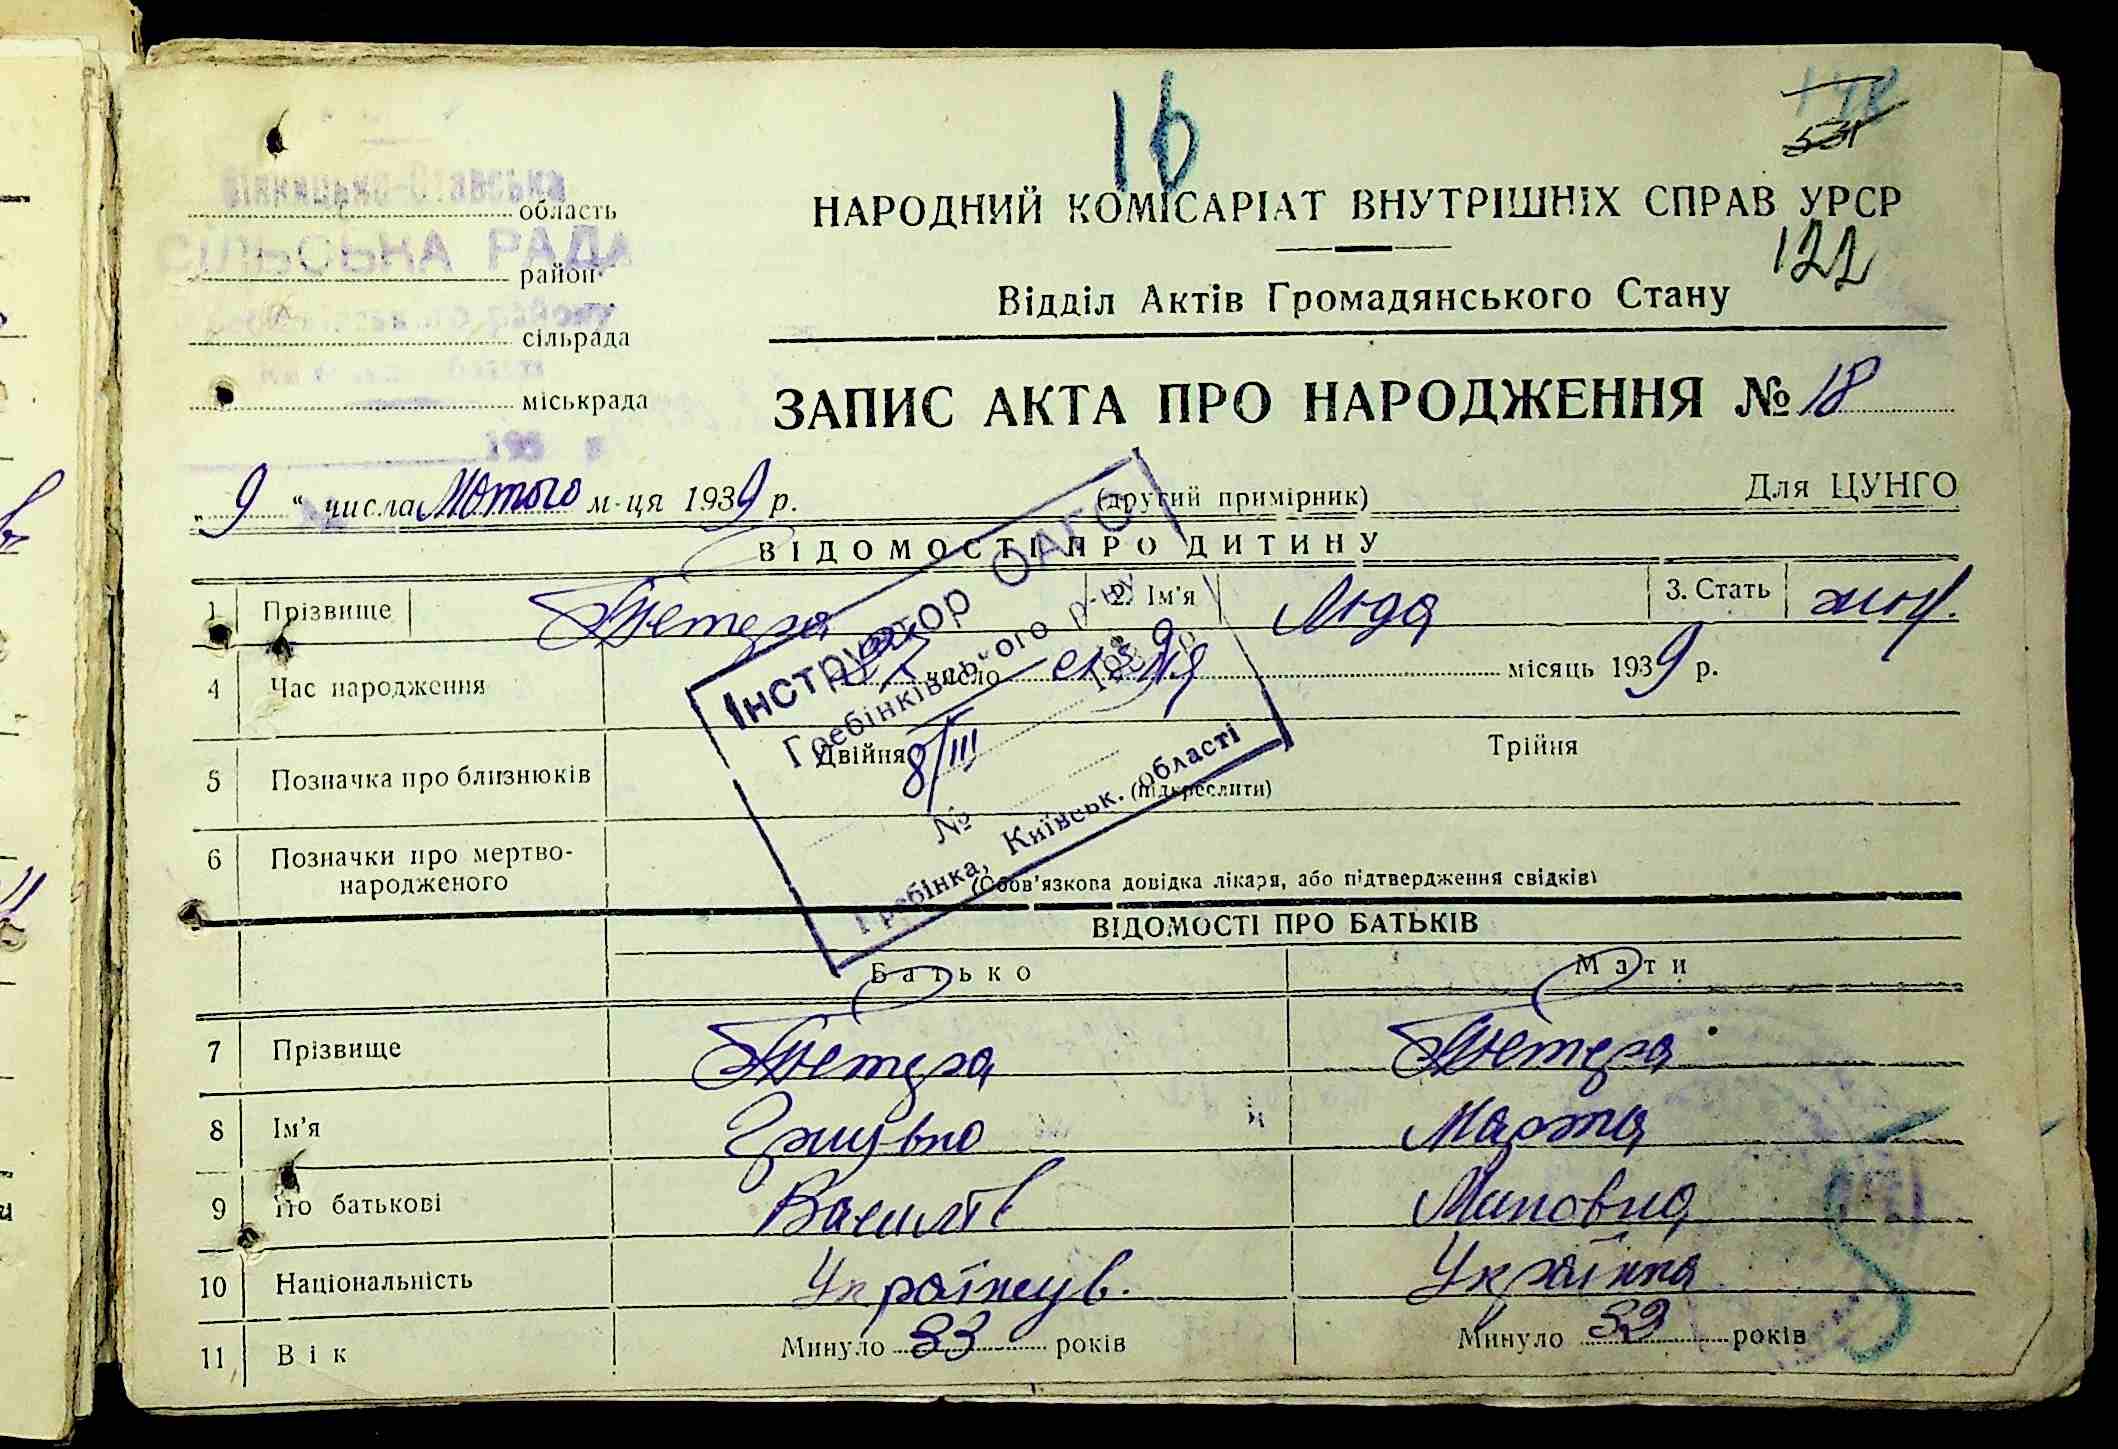 16
531
НАРОДНИЙ КОМІСАРІАТ ВНУТРІШНІХ СПРАВ УРСР
122
Вінницько-Ставська
область
СІЛЬСЬКА РАДА
район
сільрада
міськрада
Відділ Актів Громадянського Стану
ЗАПИС АКТА ПРО НАРОДЖЕННЯ № 18
„9“ числа Лютого м-ця 1939 р.
(другий примірник)
Для ЦУНГО
ВІДОМОСТІ ПРО ДИТИНУ
1 Прізвище
2. Ім'я Люда
3. Стать жін.
4 Час народження число січня місяць 1939 р.
5 Позначка про близнюків Двійня Трійня
(підкреслити)
6 Позначки про мертво-
народженого
(Обов'язкова довідка лікаря, або підтвердження свідків)
Інструктор ОАГС
Гребінківського р-ну
8/III
№
Гребінка, Київськ. області
ВІДОМОСТІ ПРО БАТЬКІВ
Батько Мати
7 Прізвище
8 Ім'я Марта
9 По батькові Василів
10 Національність Українец. Українка
11 Вік Минуло 33 років Минуло років